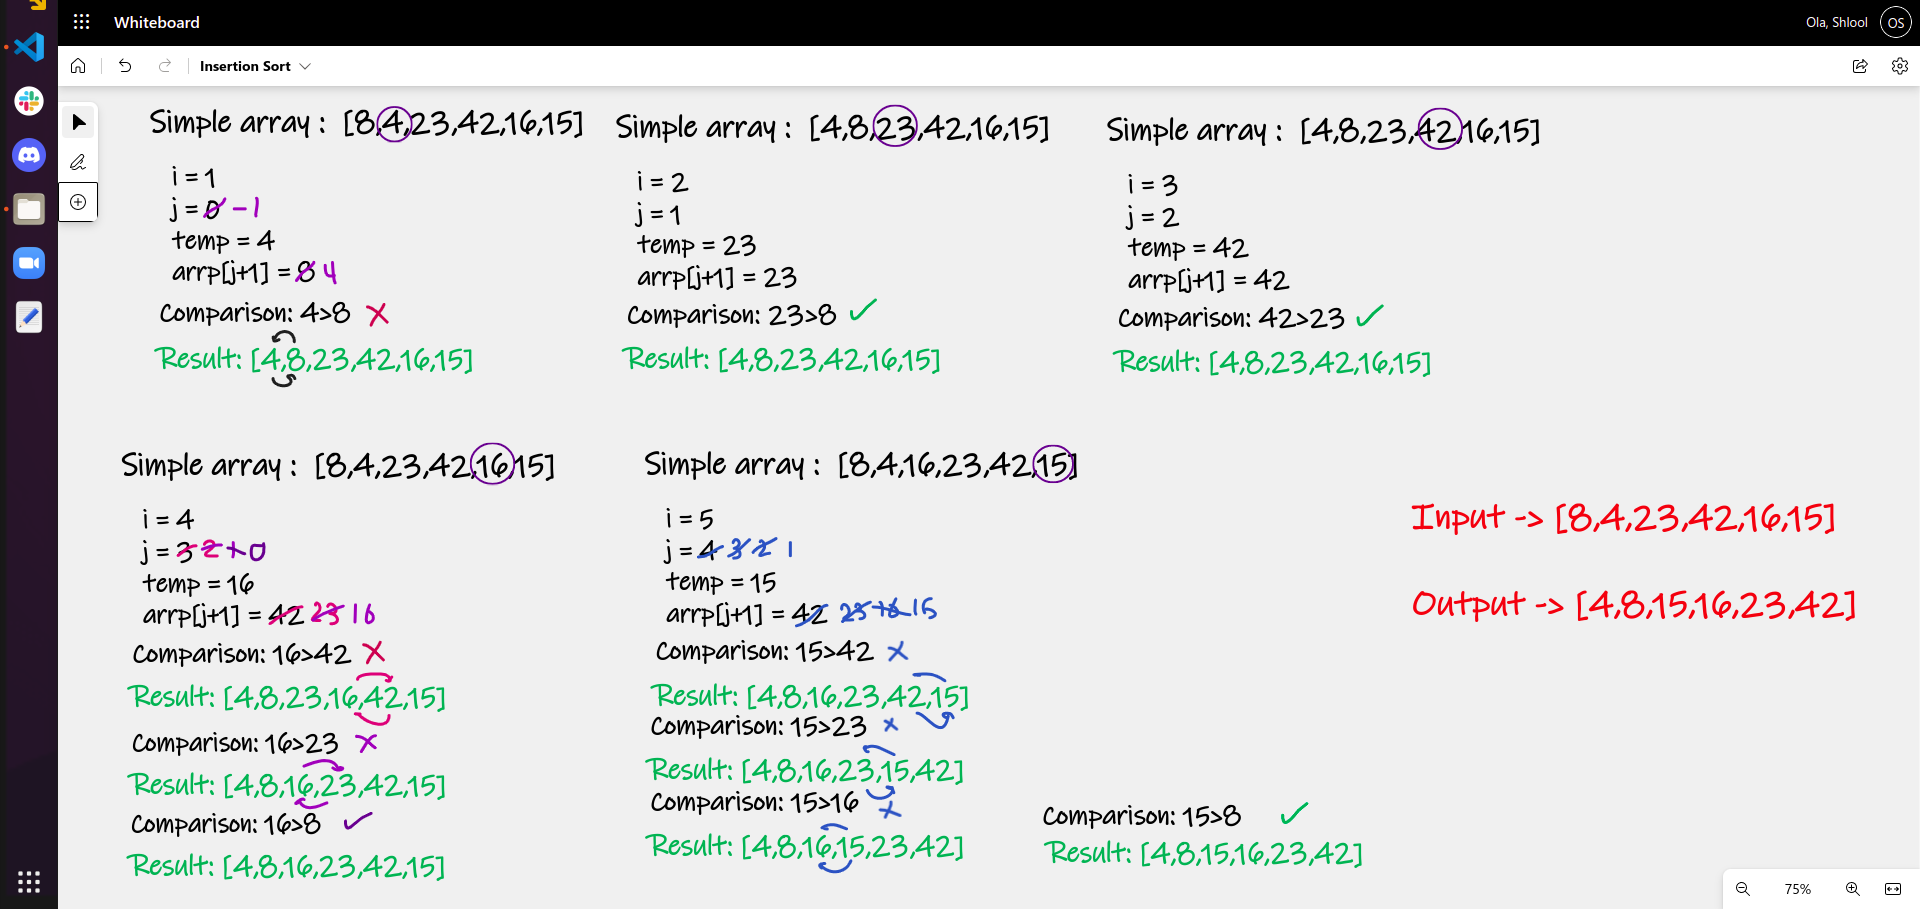 Whiteboard
Ola, Shlool
OS
Insertion Sort
Simple array : [8,4,23,42,16,15]
i = 1
j = 0 -1
temp = 4
arrp[j+1] = 8 4
Comparison: 4>8 X
Result: [4,8,23,42,16,15]
Simple array : [4,8,23,42,16,15]
i = 2
j = 1
temp = 23
arrp[j+1] = 23
Comparison: 23>8 ✓
Result: [4,8,23,42,16,15]
Simple array : [4,8,23,42,16,15]
i = 3
j = 2
temp = 42
arrp[j+1] = 42
Comparison: 42>23 ✓
Result: [4,8,23,42,16,15]
Simple array : [8,4,23,42,16,15]
i = 4
j = 3 2 1 0
temp = 16
arrp[j+1] = 42 23 16
Comparison: 16>42 X
Result: [4,8,23,16,42,15]
Comparison: 16>23 X
Result: [4,8,16,23,42,15]
Comparison: 16>8 ✓
Result: [4,8,16,23,42,15]
Simple array : [8,4,16,23,42,15]
i = 5
j = 4 3 2 1
temp = 15
arrp[j+1] = 42 23 16 15
Comparison: 15>42 X
Result: [4,8,16,23,42,15]
Comparison: 15>23 X
Result: [4,8,16,23,15,42]
Comparison: 15>16 X
Result: [4,8,16,15,23,42]
Comparison: 15>8 ✓
Result: [4,8,15,16,23,42]
Input -> [8,4,23,42,16,15]
Output -> [4,8,15,16,23,42]
75%